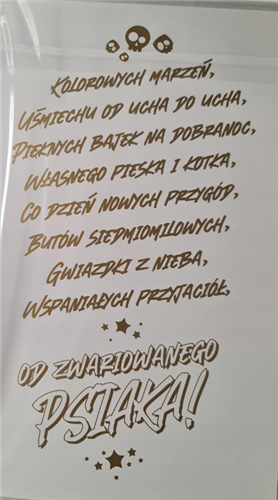 Kolorowych marzeń,
Uśmiechu od ucha do ucha,
Pięknych bajek na dobranoc,
Własnego pieska i kotka,
Co dzień nowych przygód,
Butów siedmiomilowych,
Gwiazdki z nieba,
Wspaniałych przyjaciół,
od zwariowanego
PSIAKA!